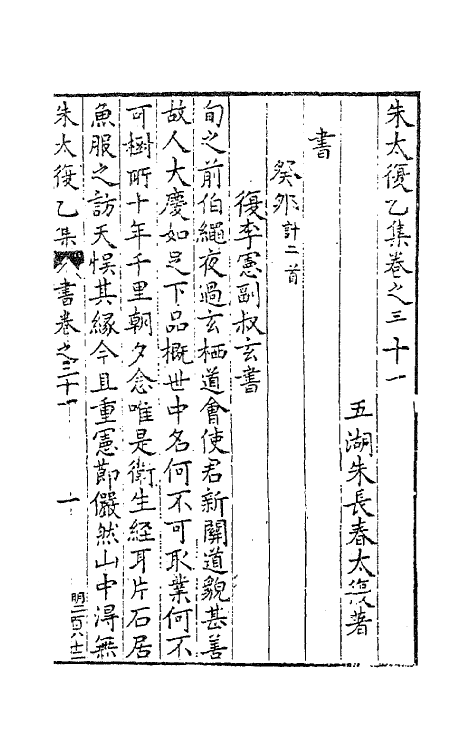 朱太復乙集卷之三十一
五湖朱長春太復著
書
癸卯計二首
復李憲副叔玄書
旬之前伯繩夜過玄栖道會使君新關道貌甚善
故人大慶如足下品概世中名何不可取業何不
可樹所十年千里朝夕念唯是衛生經耳片石居
魚服之訪天悞其緣今且重憲節儼然山中淂無
朱太復乙集 書卷之三十一 一